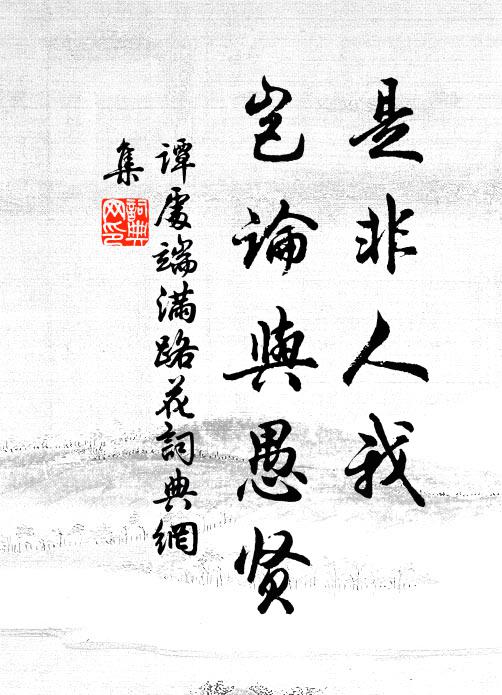 是非人我
岂論與愚贤
譚處端满路花詞典網
集
詞典
网印